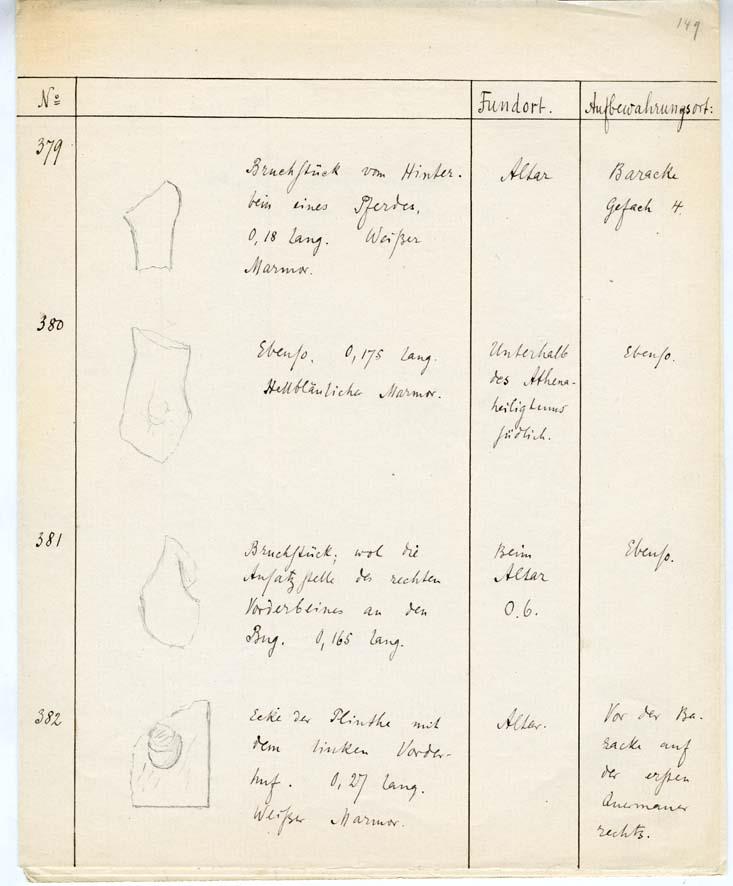 149
No Fundort. Aufbewahrungsort:
379
Bruchstück vom Hinter-
bein eines Pferdes,
0,18 lang. Weißer
Marmor.
Altar
Baracke
Gefach 4.
380
Ebenso. 0,175 lang.
Hellbläulicher Marmor.
Unterhalb
des Athena-
heiligtums
südlich.
Ebenso.
381
Bruchstück; wol die
Ansatzstelle des rechten
Vorderbeines an den
Bug. 0,165 lang.
Beim
Altar
O.6.
Ebenso.
382
Ecke der Plinthe mit
dem linken Vorder-
huf. 0,27 lang.
Weißer Marmor.
Altar.
Vor der Ba-
racke auf
der ersten
Quermauer
rechts.